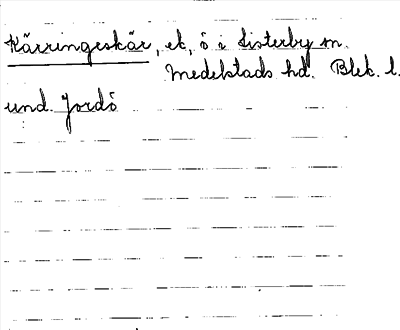 Kärringeskär, ek, ö i Listerby sn.
Medelstads hd. Blek. l.
und. Jordö